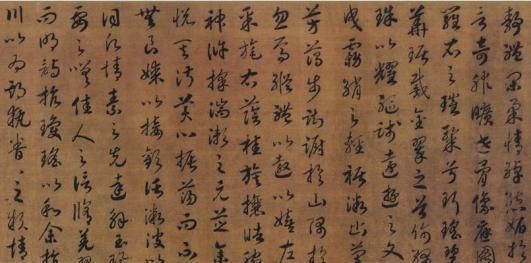 靜體閑柔情綽態媚於
言奇服曠世骨像應圖
羅衣之璀粲兮珥瑤碧
華琚戴金翠之首飾綴
珠以耀軀踐遠遊之文
曳霧綃之輕裾微幽蘭
芳藹步踟躕於山隅於
忽焉縱體以遨以嬉左
采旄右蔭桂旗攘皓腕
神滸採湍瀨之玄芝余
悅其淑美心振蕩而不
無良媒以接歡託微波以
情素之先達解玉珮
要之嗟佳人之信脩羌習
而明詩抗瓊珶以和余指
川以為期執眷眷之款情